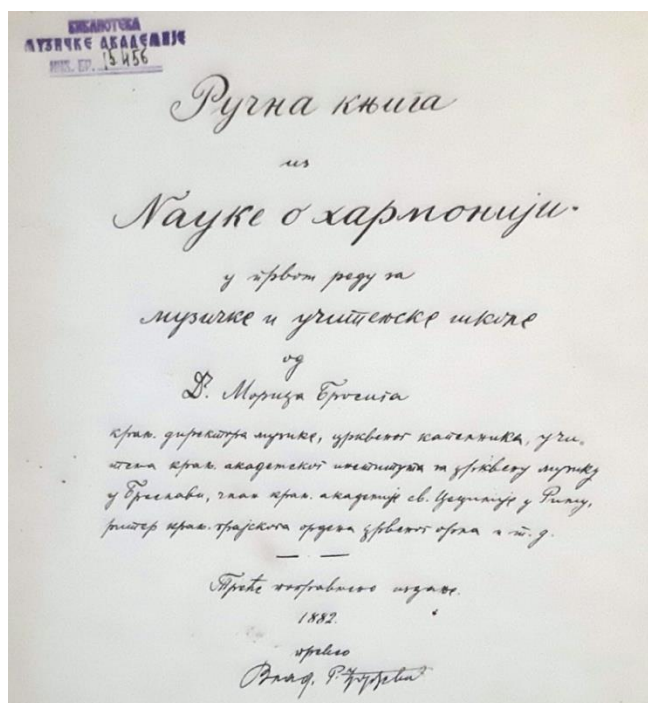 БИБЛИОТЕКА
МУЗИЧКЕ АКАДЕМИЈЕ
ИНВ. БР. 15456
Ручна књига
из
Науке о хармонији.
у првом реду за
музичке и учитељске школе
од
Dr. Морица Бросига
краљ. директора музике, црквеног капелника, учи-
теља краљ. академског института за црквену музику
у Бреслави, члан краљ. академије св. Цецилије у Риму,
ритер краљ. прајскога ордена црвеног орла и т. д.
Треће поправљено издање.
1882.
превео
Влад. Р. Ђорђевић